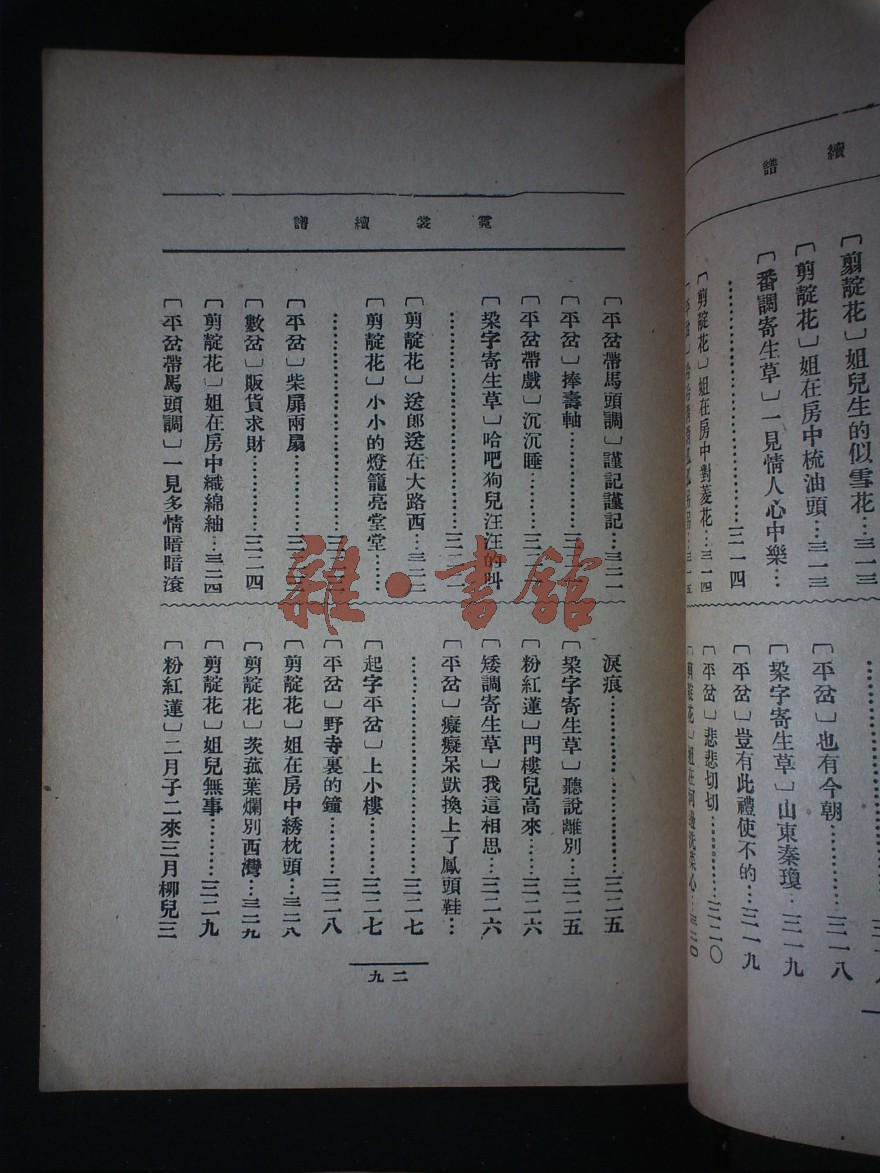 續譜
〔剪靛花〕姐兒生的似雪花…三一三
〔剪靛花〕姐在房中梳油頭…三一三
〔番調寄生草〕一見情人心中樂…
…………三一四
〔剪靛花〕姐在房中對菱花…三一四
〔平岔〕
〔平岔〕也有今朝…………三一八
〔梁字寄生草〕山東秦瓊…三一九
〔平岔〕豈有此禮使不的…三一九
〔平岔〕悲悲切切…………三二〇
〔剪靛花〕姐在河邊洗菜心…三二〇
霓裳續譜
〔平岔帶馬頭調〕謹記謹記…三二一
〔平岔〕捧壽軸…………三二
〔平岔帶戲〕沉沉睡…………三二
〔梁字寄生草〕哈吧狗兒汪汪的叫
…………三二二
〔剪靛花〕送郎送在大路西…三二三
〔剪靛花〕小小的燈籠亮堂堂……
…………三二三
〔平岔〕柴扉兩扇…………三二
〔數岔〕販貨求財…………三二四
〔剪靛花〕姐在房中織綿紬…三二四
〔平岔帶馬頭調〕一見多情暗暗滾
淚痕…………三二五
〔梁字寄生草〕聽說離別…三二五
〔粉紅蓮〕門樓兒高來……三二六
〔矮調寄生草〕我這相思…三二六
〔平岔〕癡癡呆獃換上了鳳頭鞋…
…………三二七
〔起字平岔〕上小樓………三二七
〔平岔〕野寺裏的鐘………三二八
〔剪靛花〕姐在房中綉枕頭…三二八
〔剪靛花〕茨菰葉爛別西灣…三二九
〔剪靛花〕姐兒無事………三二九
〔粉紅蓮〕二月子二來三月柳兒三
二九
雜·書館